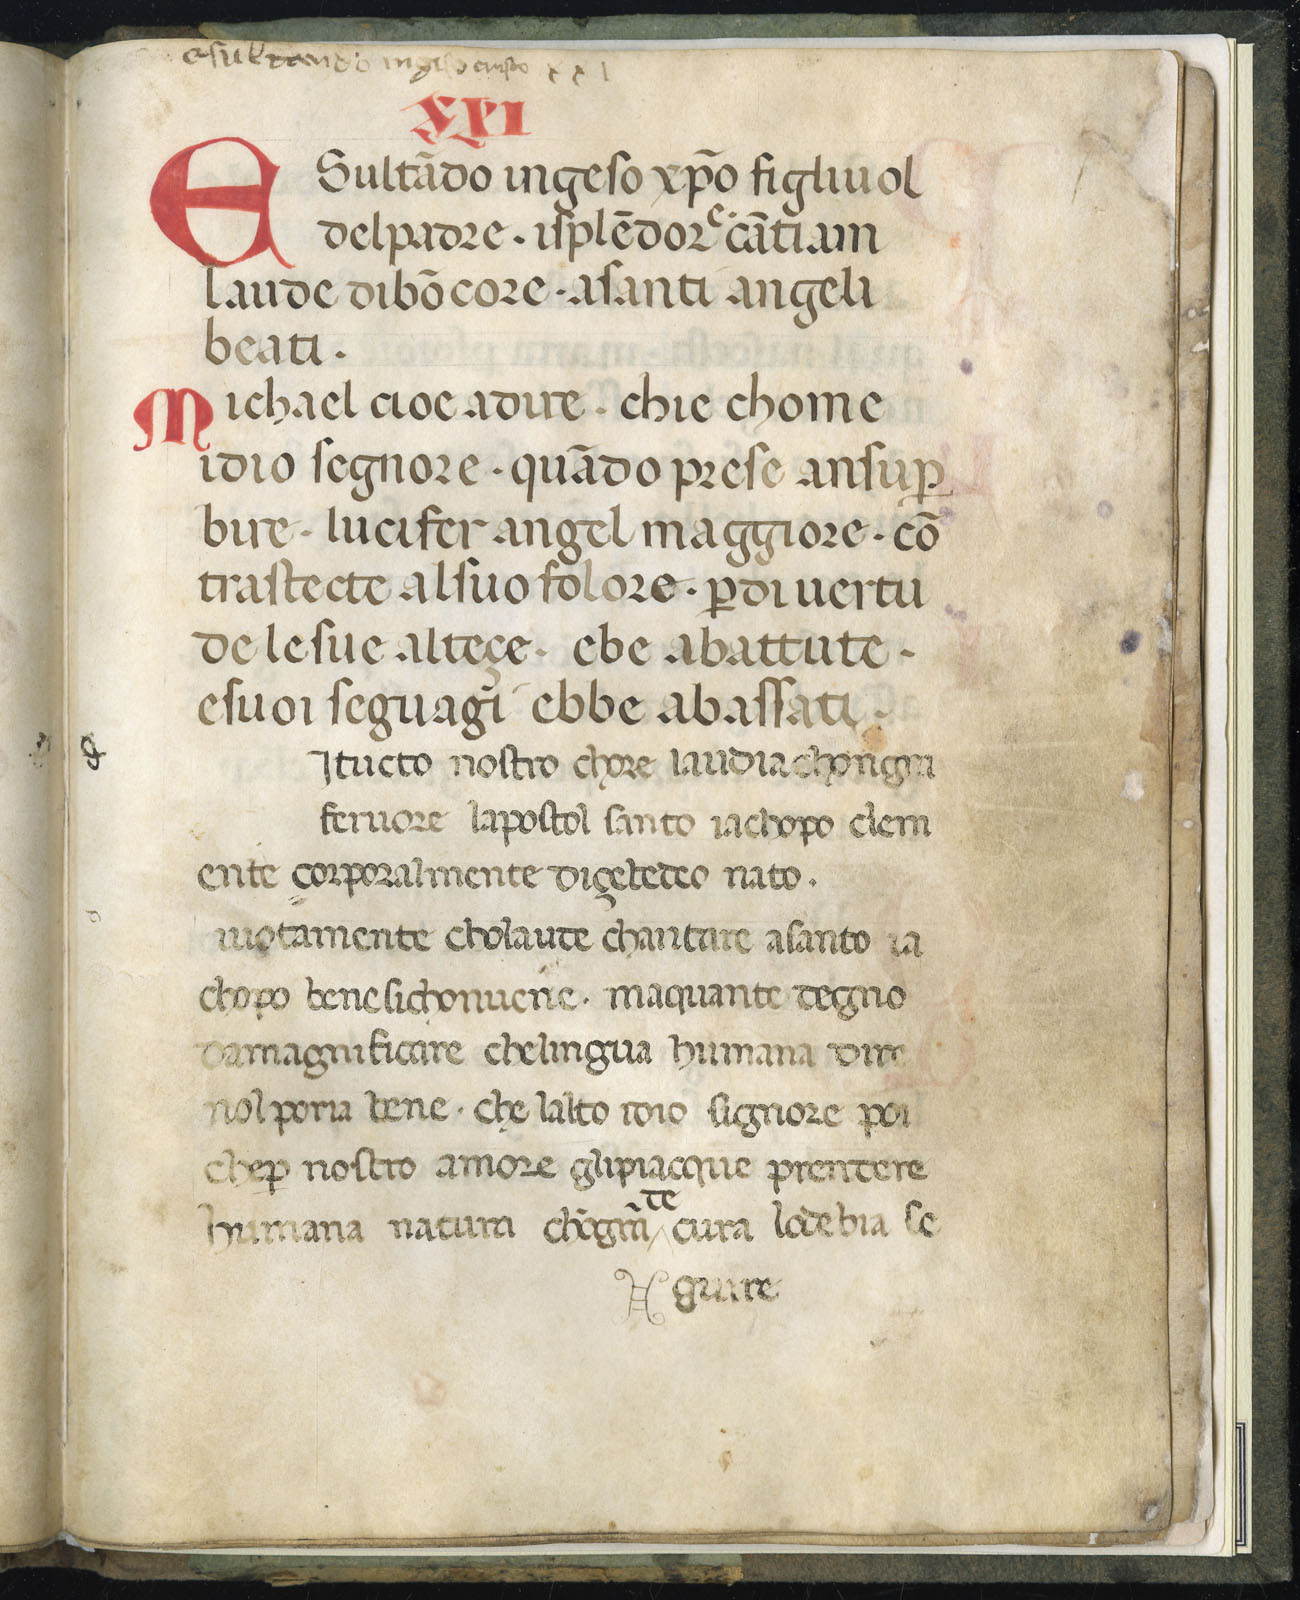 esultando in gieso cristo x x I
XXI
ESultādo ingeso xp̄o figliuol
delpadre · isplēdorͤ cātiam
laude dibōcore · asanti angeli
beati ·
Michael cioe adire · chie chome
idio segnore · quādo prese ansuꝑ
bire · lucifer angel maggiore · cō
trastecte alsuo folore · ꝑdi uertu
de lesue alteçe · ebe abattute ·
esuoi seguagi ebbe abassati ·
Itucto nostro chore laudia chongra
feruore lapostol santo iachopo clem
ente çorporalmente diçebedeo nato ·
uotamente cholaude chantare asanto ia
chopo bene sichonuene · maquante degno
damagnificare chelingua humana dire
nolporia bene · che lalto idio signore poi
cheꝑ nostro amore glipiacque prendere
humana natura chōgrā de cura lodebia se
guire